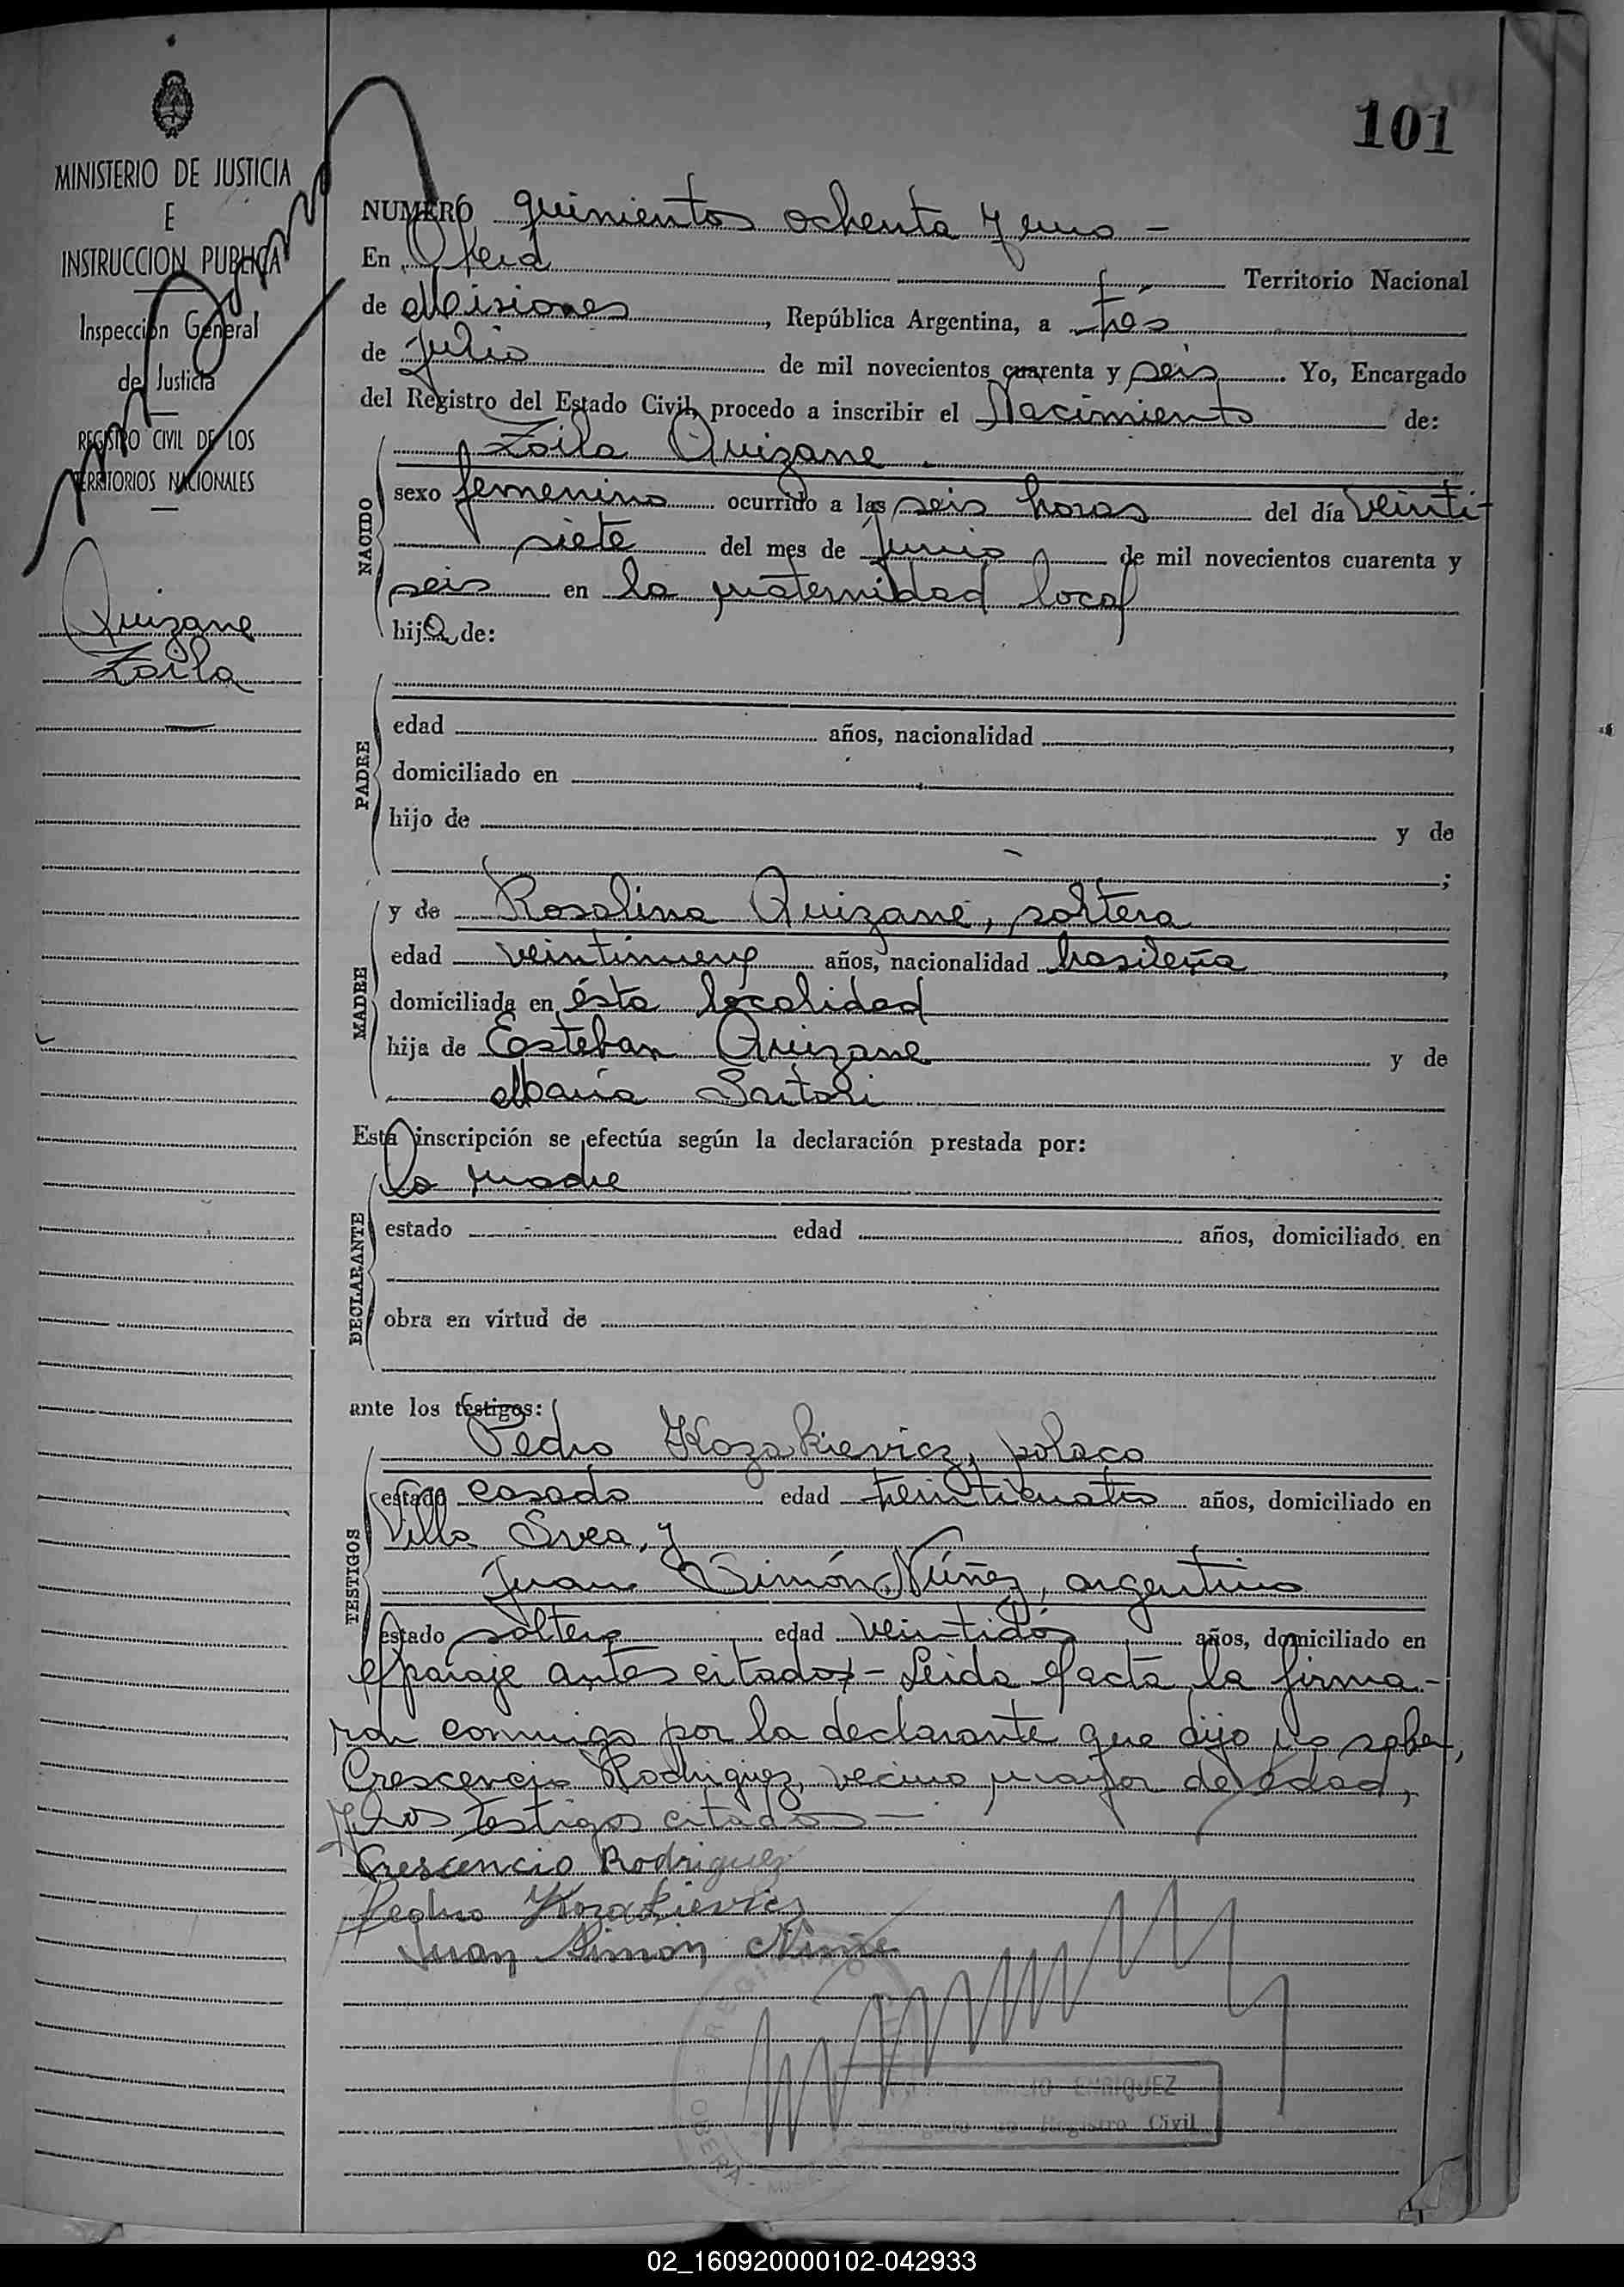 101
MINISTERIO DE JUSTICIA
E
INSTRUCCION PUBLICA
Inspección General
de Justicia
REGISTRO CIVIL DE LOS
TERRITORIOS NACIONALES
Quizane
Zoila
NUMERO quinientos ochenta y uno -
En Oberá Territorio Nacional
de Misiones, República Argentina, a tres
de Julio de mil novecientos cuarenta y seis. Yo, Encargado
del Registro del Estado Civil, procedo a inscribir el Nacimiento de:
Zoila Quizane.
NACIDO
sexo femenino ocurrido a las seis horas del día veinti-
siete del mes de junio de mil novecientos cuarenta y
seis en la maternidad local
hija de:
PADRE
edad años, nacionalidad,
domiciliado en
hijo de y de
;
MADRE
y de Rosalina Quizane, soltera
edad veintinueve años, nacionalidad brasileña,
domiciliada en ésta localidad
hija de Esteban Quizane y de
María Sartori
Esta inscripción se efectúa según la declaración prestada por:
la madre
DECLARANTE
estado edad años, domiciliado en
obra en virtud de
ante los testigos:
TESTIGOS
Pedro Kozakievicz, polaco
estado casado edad treinticuatro años, domiciliado en
Villa Svea, y
Juan Simón Núñez, argentino
estado soltero edad veintidós años, domiciliado en
el paraje antes citado - Leida el acta la firma-
ron conmigo por la declarante que dijo no saber,
Crescencio Rodriguez, vecino mayor de edad,
y los testigos citados -
Crescencio Rodriguez
Pedro Kozakievicz
Juan Simon
REGISTRO
OBERA
ENRIQUEZ
Registro Civil
02_160920000102-042933